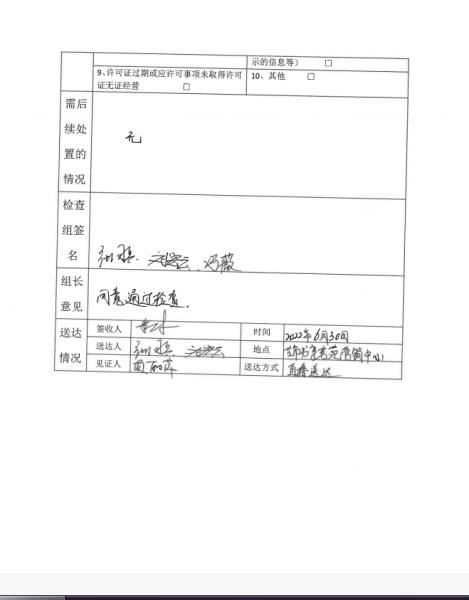 示的信息等） □
9、许可证过期或应许可事项未取得许可
证无证经营 □
10、其他 □
需后
续处
置的
情况
无
检查
组签
名
冯薇
组长
意见
同意通过检查.
送达
情况
签收人
时间
2022年6月30日
送达人
地点
营销中心
见证人
送达方式
直接送达